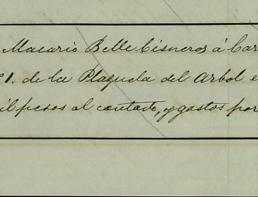 Macario Belle Cisneros á Car
1. de la Plazuela del Arbol e
il pesos al contado, y gastos por